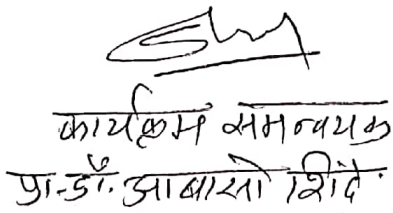 कार्यक्रम समन्वयक
प्रा.डॉ. आबासो शिंदे.